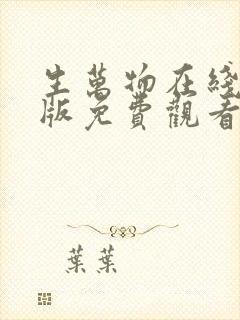 生萬物在綫
版免費觀看
葉葉